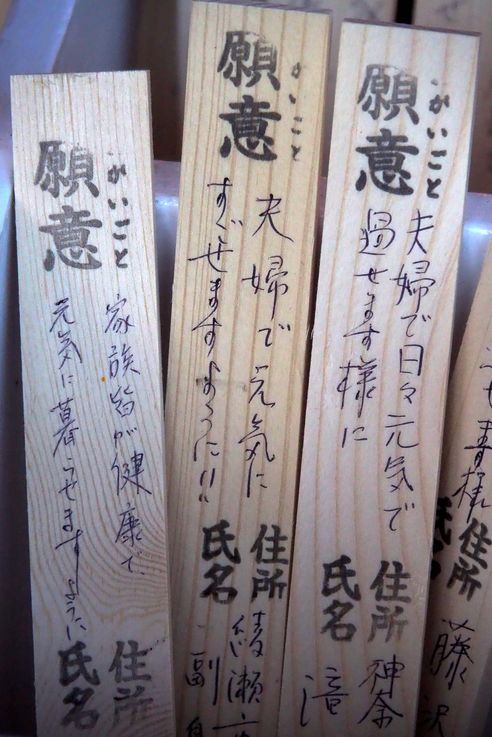 がいごと
願意
家族皆が健康で、
元気に暮らせますように
住所
氏名
がいごと
願意
夫婦で元気に
すごせますように!!
住所 綾瀬
氏名
がいごと
願意
夫婦で日々元気で
過せます様に
住所 神奈
氏名
住所 藤沢